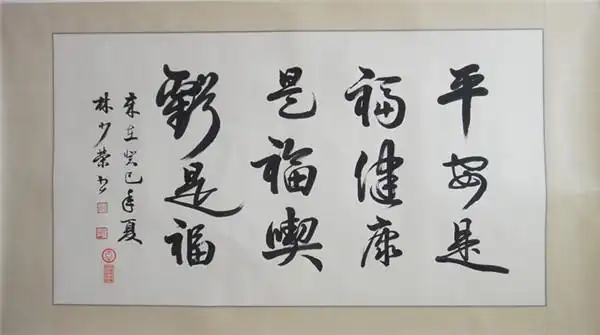 平安是
福健康
是福喫
虧是福
岁在癸巳年夏
林少荣书